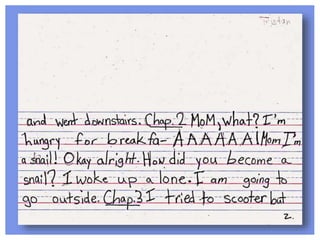 Tristan
and went downstairs. Chap. 2 MoM, what? I'm
hungry for breakfa- AAAAAA! Mom I'm
a snail! Okay alright. How did you become a
snail? I woke up a lone. I am going to
go outside. Chap. 3 I tried to scooter but
2.